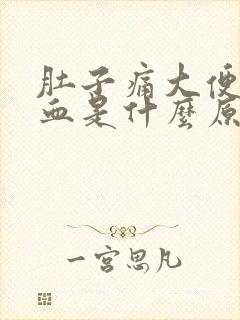 肚子痛大便
血是什麼原
一宮思凡